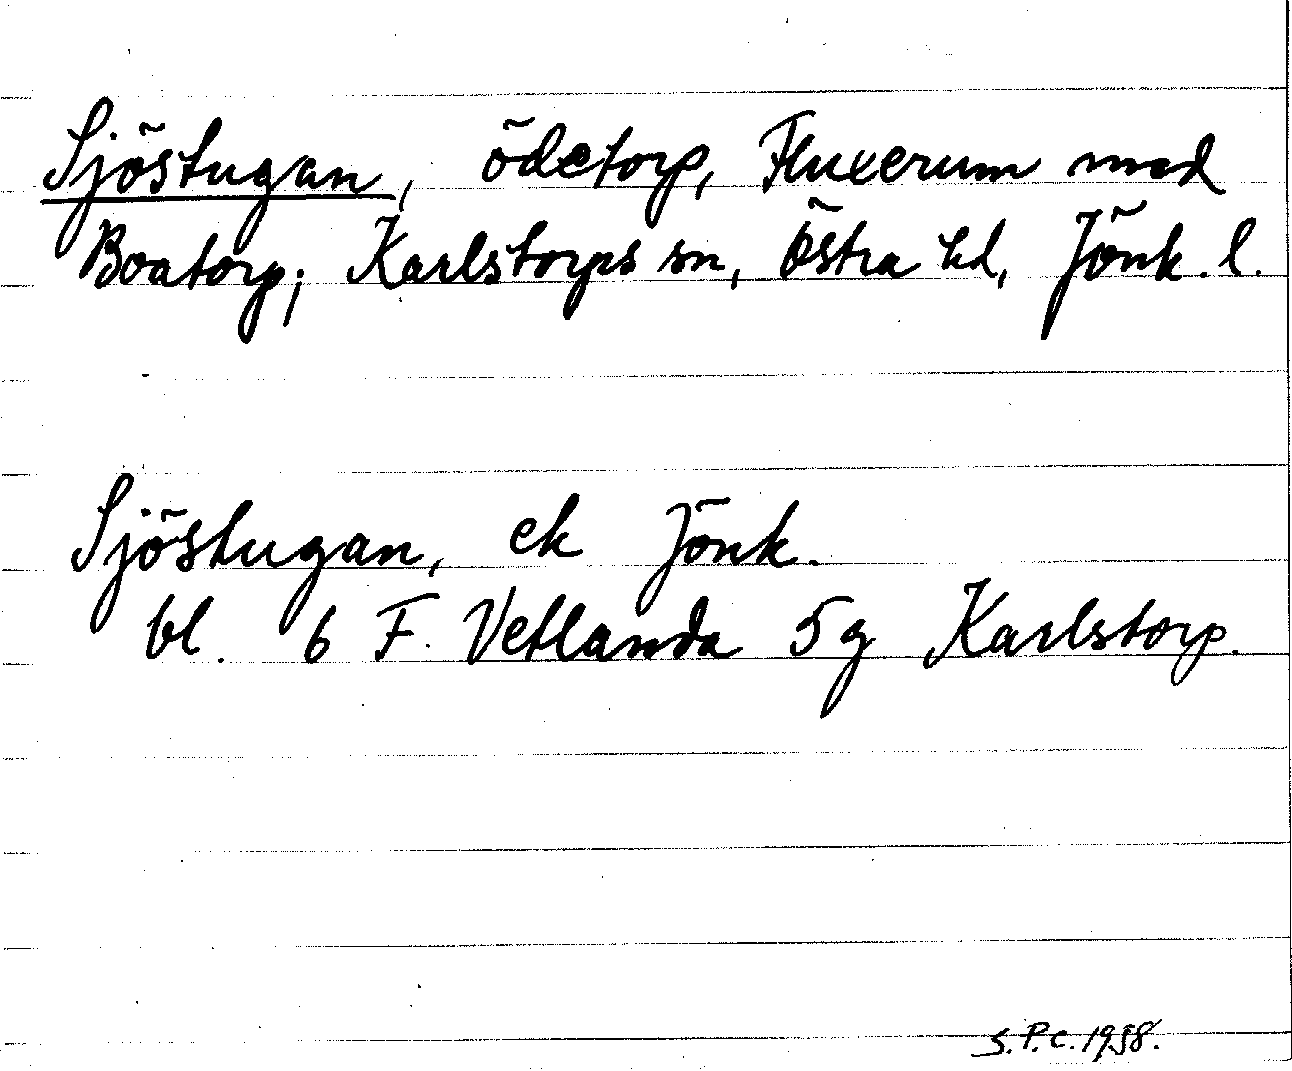 Sjöstugan, ödetorp, Fluxerum med
Boatorp; Karlstorps sn, Östra hd, Jönk. l.
Sjöstugan, ek Jönk.
bl. 6 F. Vetlanda 5g Karlstorp.
S.P.C. 1958.